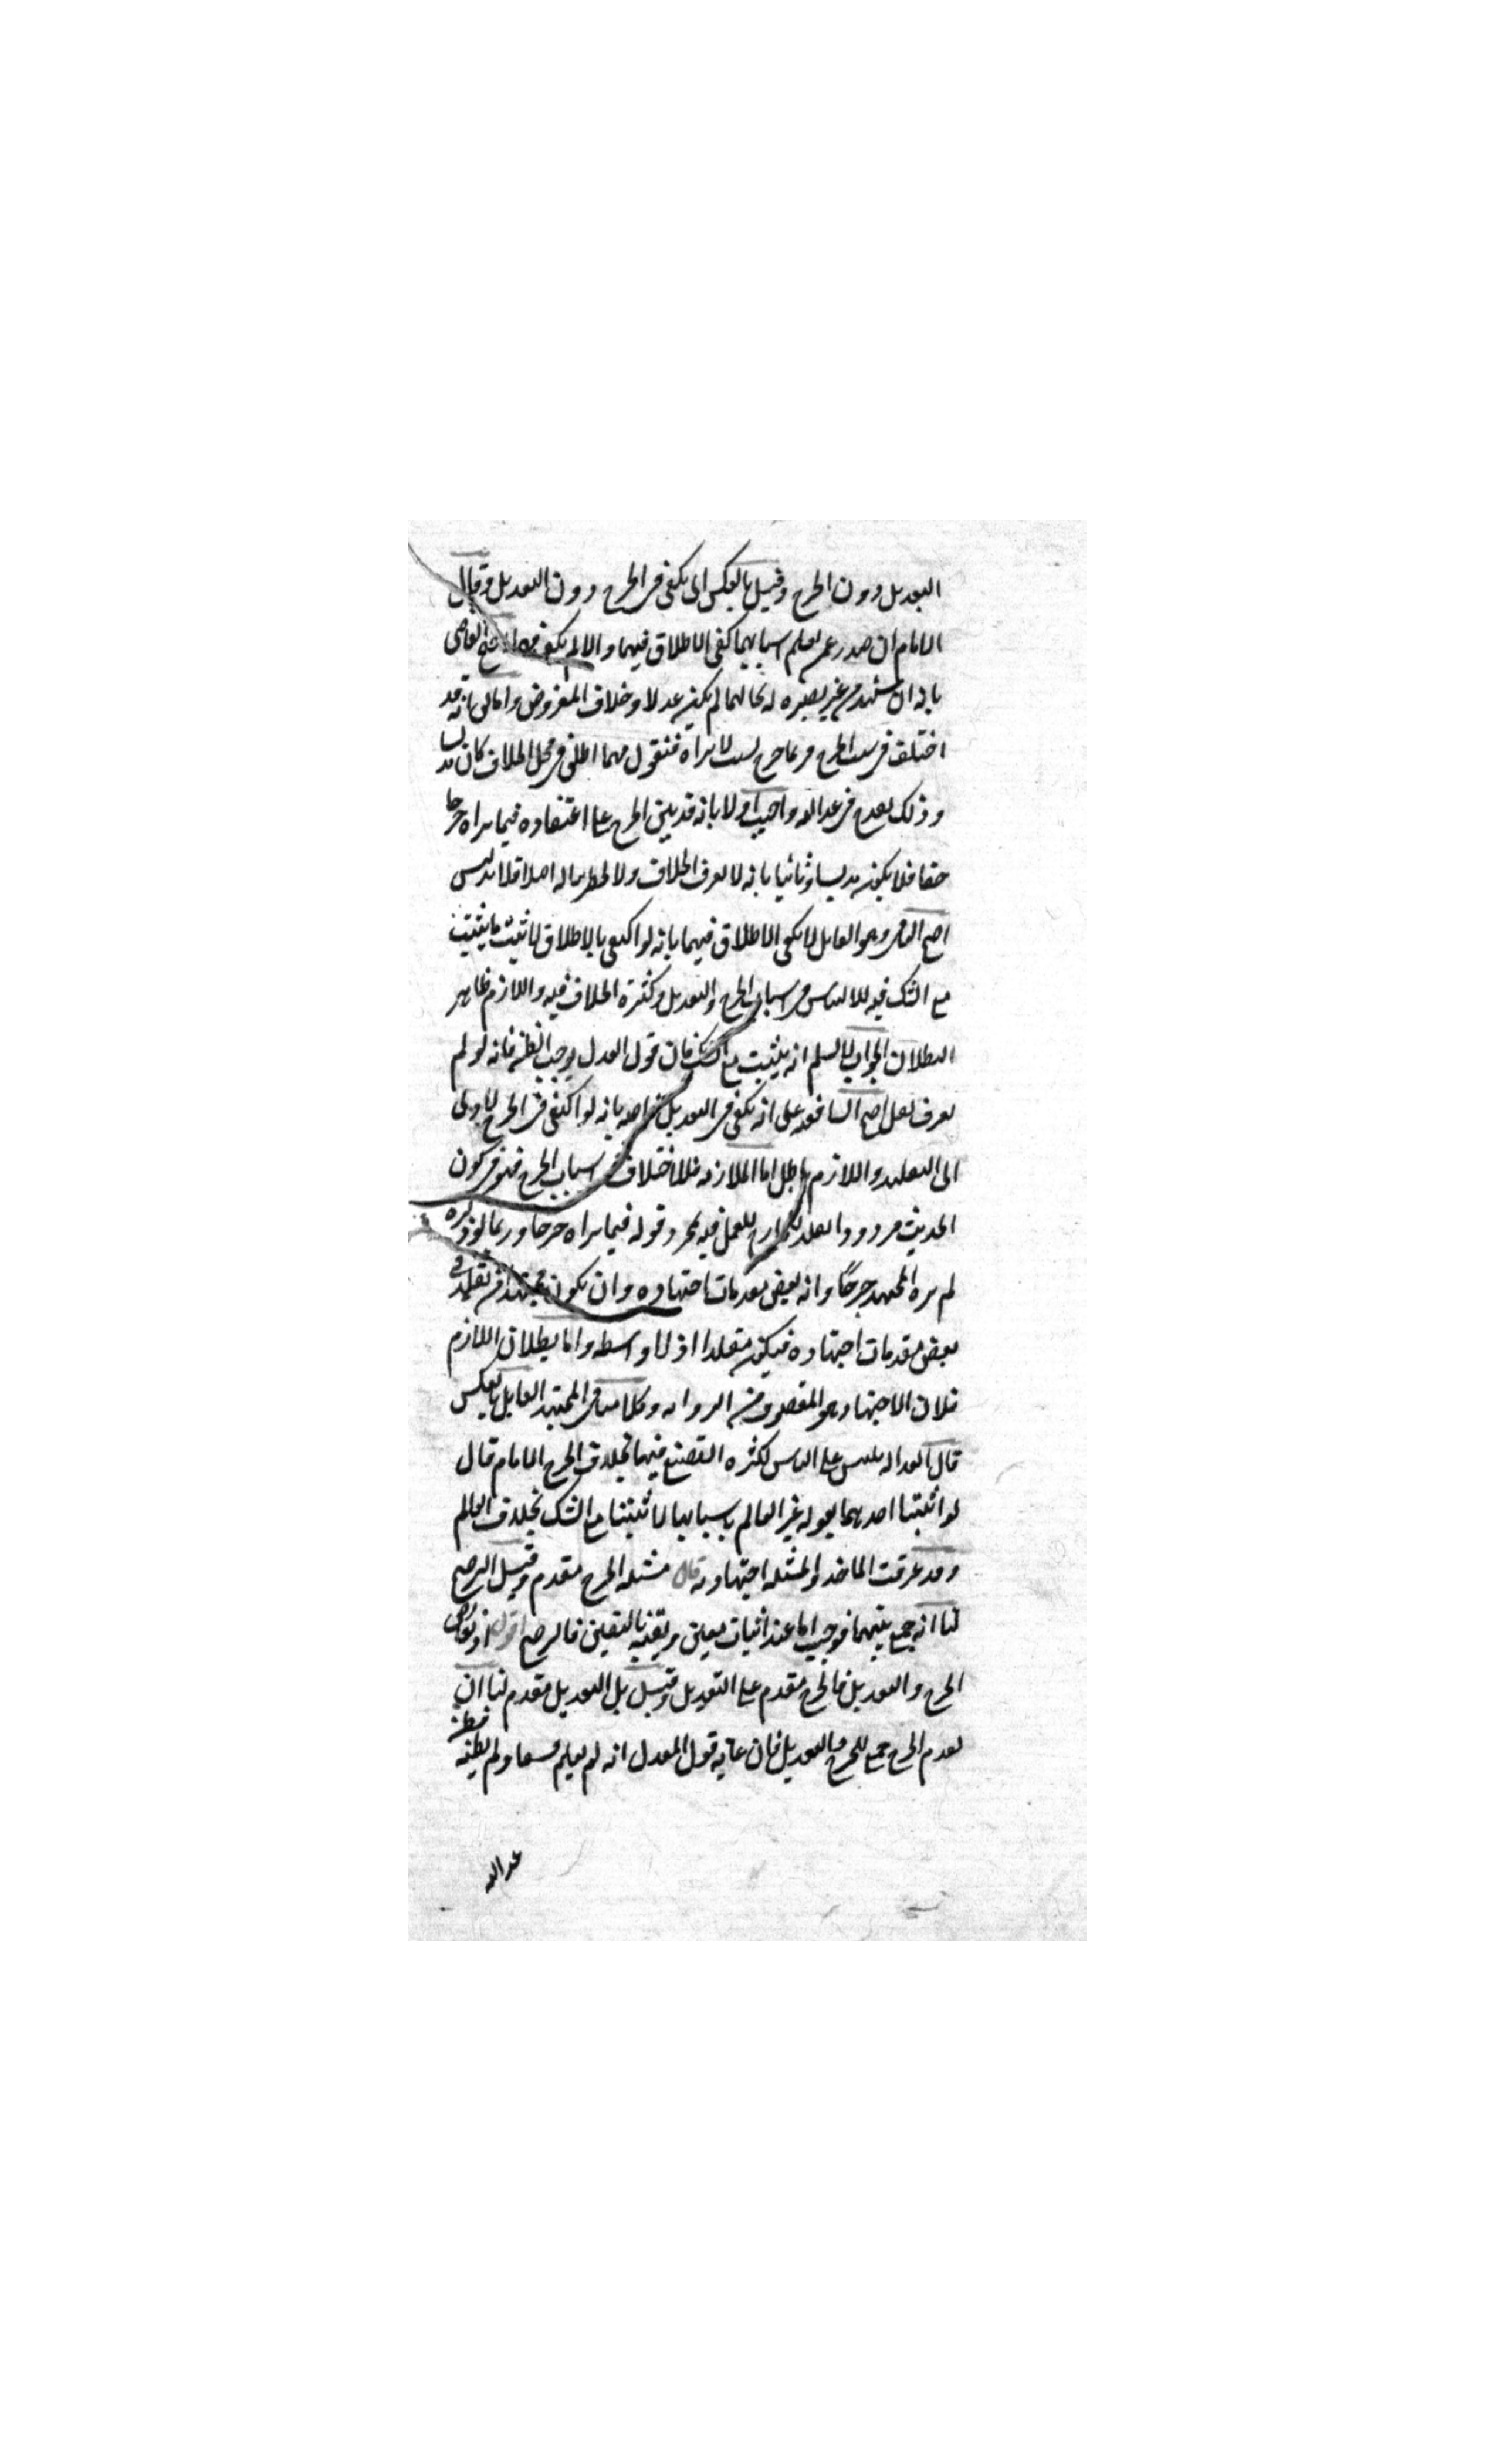 التعديل دون الجرح وقيل بالعكس اى يكفى فى الجرح دون التعديل وقال
الامام ان صدر عمن يعلم اسبابهما كفى الاطلاق فيهما والا لم يكف احتج القاضى
بانه ان شهد من غير بصيرة له بحالهما لم يكن عدلا وخلاف المفروض واما لى بانه قد
اختلف فى سبب الجرح فربما جرح بسبب لا يراه فنقول مهما اطلق فى محل الخلاف كان مدلسا
وذلك يقدح فى عدالته واجيب اولا بانه قد يبنى الجرح على اعتقاده فيما يراه جرحا
حقا فلا يكون مدلسا وثانيا بانه لا يعرف الخلاف ولا يخطر بباله اصلا فلا تدليس
احتج النافى وهو القايل لا يكفى الاطلاق فيهما بانه لو اكتفى بالاطلاق لاثبت ما يثبت
مع الشك فيه للالتباس فى اسباب الجرح والتعديل وكثرة الخلاف فيه واللازم ظاهر
البطلان الجواب لا نسلم انه يثبت مع الشك فان قول العدل يوجب الظن فانه لو لم
يعرف لم يقل احتج الشافعى على انه يكفى فى التعديل بانه لو اكتفى فى الجرح لادى
الى التقليد واللازم باطل اما الملازمة فللاختلاف فى اسباب الجرح فهو فى كون
الحديث مردودا مقلد للجارح للعمل فيه بمجرد قوله فيما يراه جرحا وربما لو ذكره
لم يره المجتهد جرحا وانه بعض مقدمات اجتهاده وان يكون مجتهدا فى تقليد فى
بعض مقدمات اجتهاده فيكون مقلدا اذ لا واسطه واما بطلان اللازم
فلان الاجتهاد هو المقصود من الروايه وكلامنا فى المجتهد القايل بالعكس
قال العداله تلتبس على الناس لكثره التصنع فيها بخلاف الجرح الامام قال
لو اثبتنا احدهما بقول غير العالم باسبابها لاثبتنا مع الشك بخلاف العالم
وقد عرفت الماخذ والمسئله اجتهاديه قال مسئله الجرح مقدم وقيل الترجيح
لنا انه جمع بينهما فوجب اما عند اثبات معين ونفيه باليقين فالترجيح اقول اذ تعارض
الجرح والتعديل فالجرح مقدم على التعديل وقيل بل التعديل مقدم لنا ان
تقديم الجرح جمع للجرح والتعديل فان غايه قول المعدل انه لم يعلم فسقا ولم يظنه فظن
عدالته